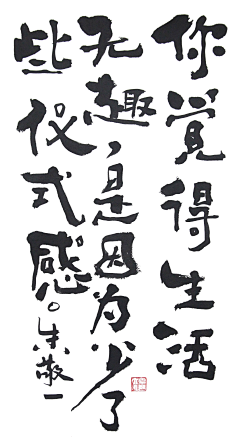 你觉得生活
无趣，是因为少了
些仪式感。朱敬一